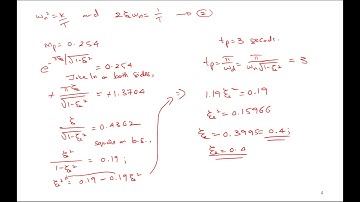 ωn² = K/T and 2ξωn = 1/T → ②
Mp = 0.254
e^(-πξ/√(1-ξ²)) = 0.254
Take ln on both sides,
+ πξ/√(1-ξ²) = +1.3704
ξ/√(1-ξ²) = 0.4362
square on b.s.,
ξ²/(1-ξ²) = 0.19;
ξ² = 0.19 - 0.19ξ²
tp = 3 seconds.
tp = π/ωd = π/(ωn√(1-ξ²)) = 3
⇒ 1.19ξ² = 0.19
ξ² = 0.15966
ξ = 0.3995 = 0.4;